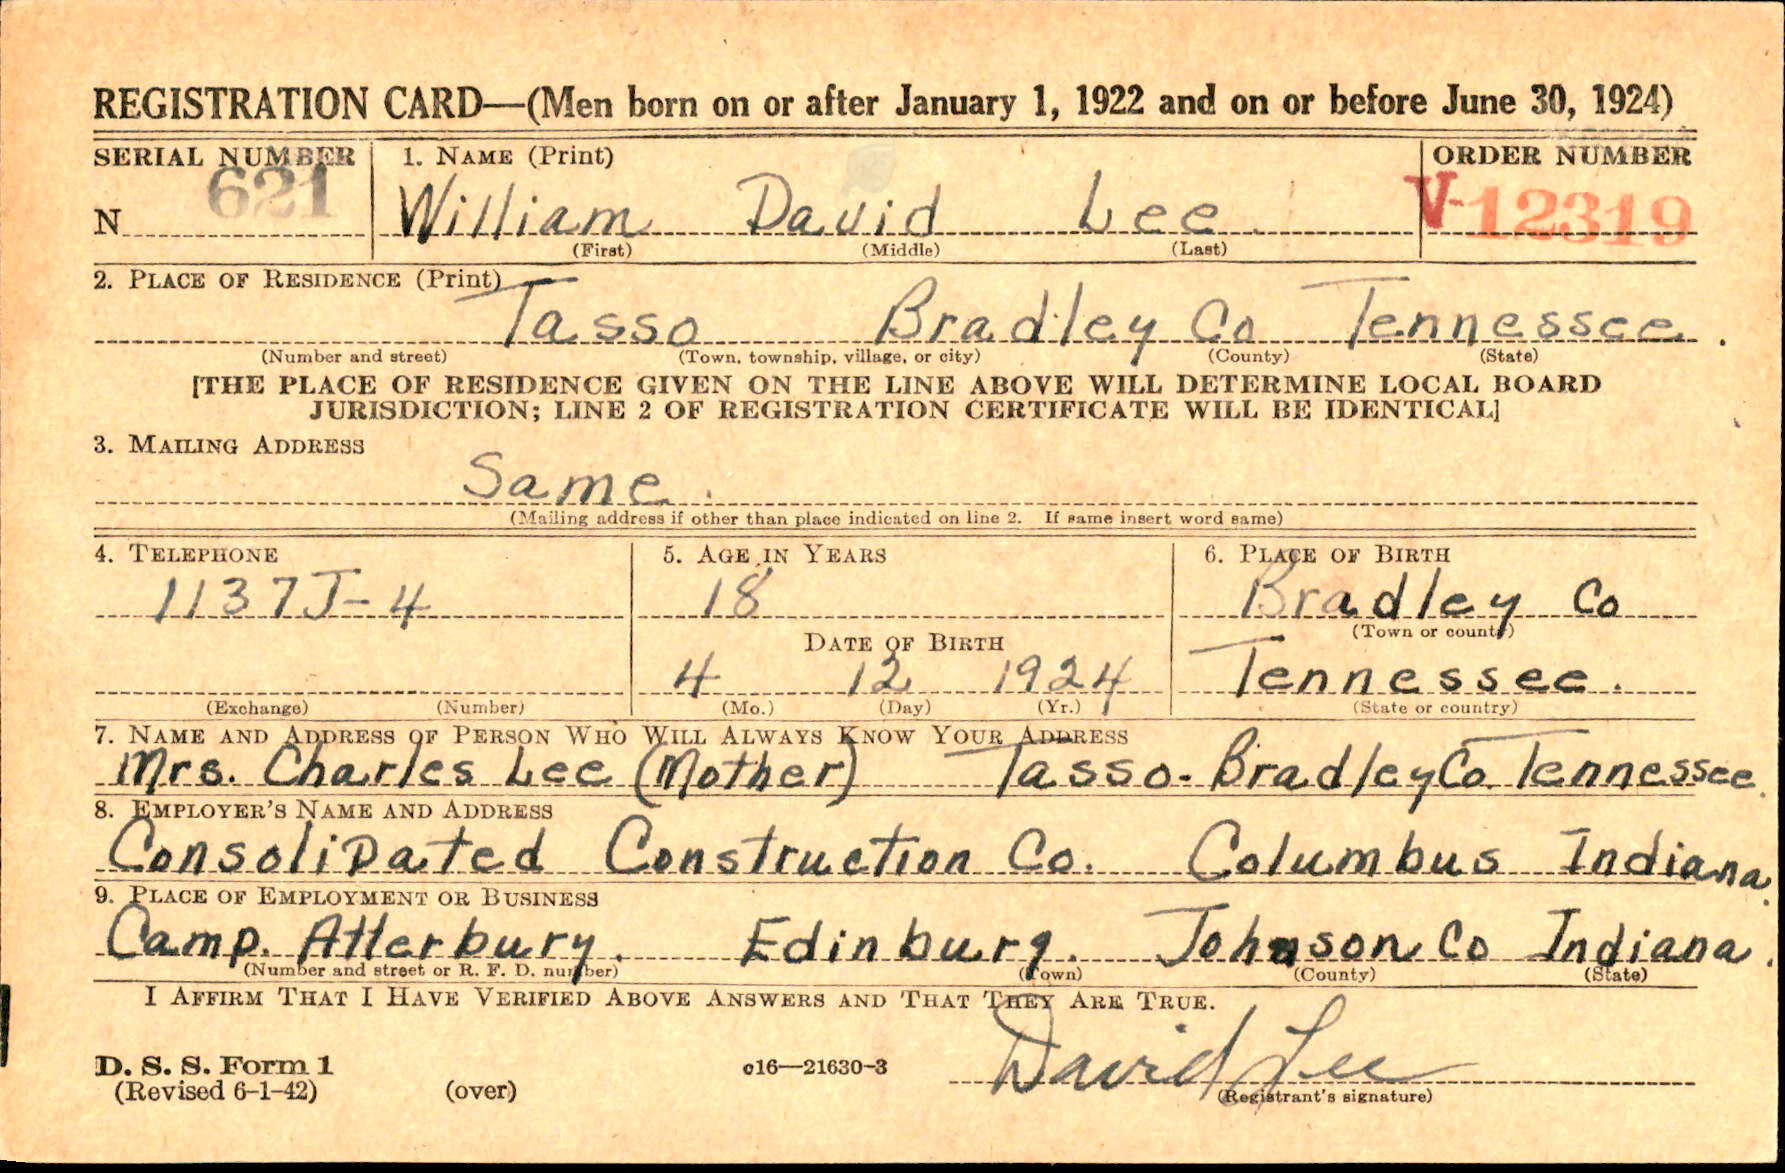 REGISTRATION CARD—(Men born on or after January 1, 1922 and on or before June 30, 1924)
SERIAL NUMBER 1. NAME (Print) ORDER NUMBER
N 621 William David Lee V-12319
(First) (Middle) (Last)
2. PLACE OF RESIDENCE (Print)
Tasso Bradley Co Tennessee.
(Number and street) (Town, township, village, or city) (County) (State)
[THE PLACE OF RESIDENCE GIVEN ON THE LINE ABOVE WILL DETERMINE LOCAL BOARD
JURISDICTION; LINE 2 OF REGISTRATION CERTIFICATE WILL BE IDENTICAL]
3. MAILING ADDRESS
Same.
(Mailing address if other than place indicated on line 2. If same insert word same)
4. TELEPHONE 5. AGE IN YEARS 6. PLACE OF BIRTH
1137J-4 18 Bradley Co
(Town or county)
DATE OF BIRTH
4 12 1924 Tennessee.
(Exchange) (Number) (Mo.) (Day) (Yr.) (State or country)
7. NAME AND ADDRESS OF PERSON WHO WILL ALWAYS KNOW YOUR ADDRESS
Mrs. Charles Lee (Mother) Tasso- Bradley Co. Tennessee.
8. EMPLOYER'S NAME AND ADDRESS
ConsoliDated Construction Co. Columbus Indiana.
9. PLACE OF EMPLOYMENT OR BUSINESS
Camp. Atterbury. Edinburg. Johnson Co Indiana.
(Number and street or R. F. D. number) (Town) (County) (State)
I AFFIRM THAT I HAVE VERIFIED ABOVE ANSWERS AND THAT THEY ARE TRUE.
David Lee
D. S. S. Form 1 c16—21630-3
(Revised 6-1-42) (over) (Registrant's signature)